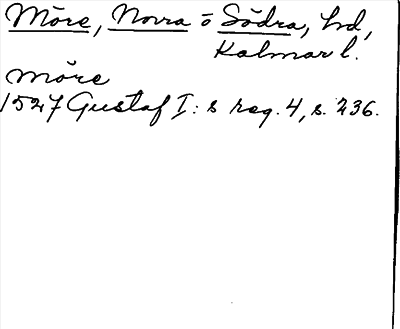 Möre, Norra o Södra, hd,
Kalmar l.
möre
1527 Gustaf I: s reg. 4, s. 236.